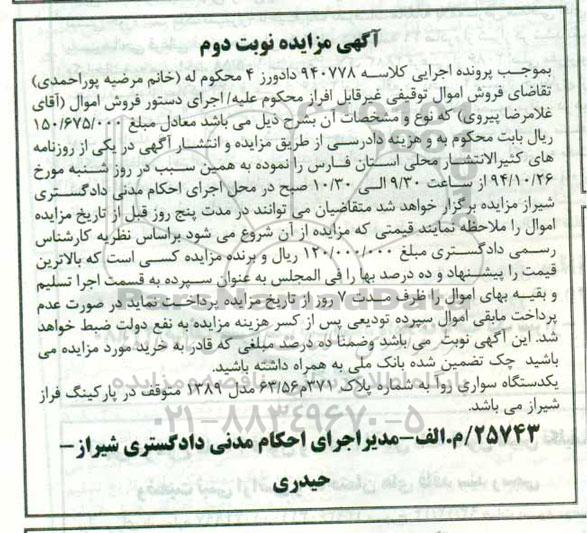 آگهی مزایده نوبت دوم
بموجب پرونده اجرایی کلاسه ۹۴۰۷۷۸ دادورز ۴ محکوم له (خانم مرضیه پوراحمدی)
تقاضای فروش اموال توقیفی غیرقابل افراز محکوم علیه/ اجرای دستور فروش اموال (آقای
غلامرضا پیروی) که نوع و مشخصات آن بشرح ذیل می باشد معادل مبلغ ۱۵۰/۶۷۵/۰۰۰
ریال بابت محکوم به و هزینه دادرسی از طریق مزایده و انتشار آگهی در یکی از روزنامه
های کثیرالانتشار محلی استان فارس را نموده به همین سبب در روز شنبه مورخ
۹۴/۱۰/۲۶ از ساعت ۹/۳۰ الی ۱۰/۳۰ صبح در محل اجرای احکام مدنی دادگستری
شیراز مزایده برگزار خواهد شد متقاضیان می توانند در مدت پنج روز قبل از تاریخ مزایده
اموال را ملاحظه نمایند قیمتی که مزایده از آن شروع می شود براساس نظریه کارشناس
رسمی دادگستری مبلغ ۱۲۰/۰۰۰/۰۰۰ ریال و برنده مزایده کسی است که بالاترین
قیمت را پیشنهاد و ده درصد بها را فی المجلس به عنوان سپرده به قسمت اجرا تسلیم
و بقیه بهای اموال را ظرف مدت ۷ روز از تاریخ مزایده پرداخت نماید در صورت عدم
پرداخت مابقی اموال سپرده تودیعی پس از کسر هزینه مزایده به نفع دولت ضبط خواهد
شد. این آگهی نوبت می باشد وضمنا ده درصد مبلغی که قادر به خرید مورد مزایده می
باشید چک تضمین شده بانک ملی به همراه داشته باشید.
یکدستگاه سواری روآ به شماره پلاک ۳۷۱م۶۳/۵۶ مدل ۱۳۸۹ متوقف در پارکینگ فراز
شیراز می باشد.
۲۵۷۴۳/م.الف-مدیراجرای احکام مدنی دادگستری شیراز-
حیدری
۰۲۱-۸۸۳۴۹۶۷۰-۵